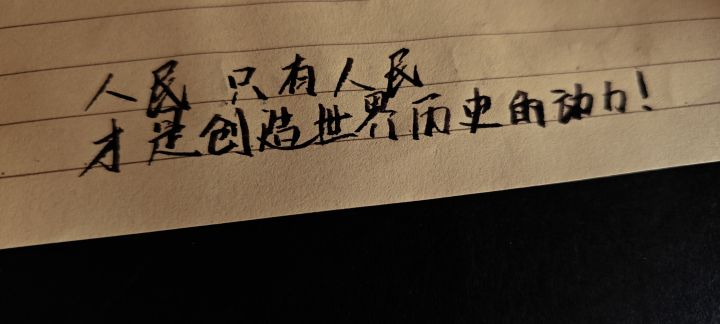 人民 只有人民
才是创造世界历史的动力!